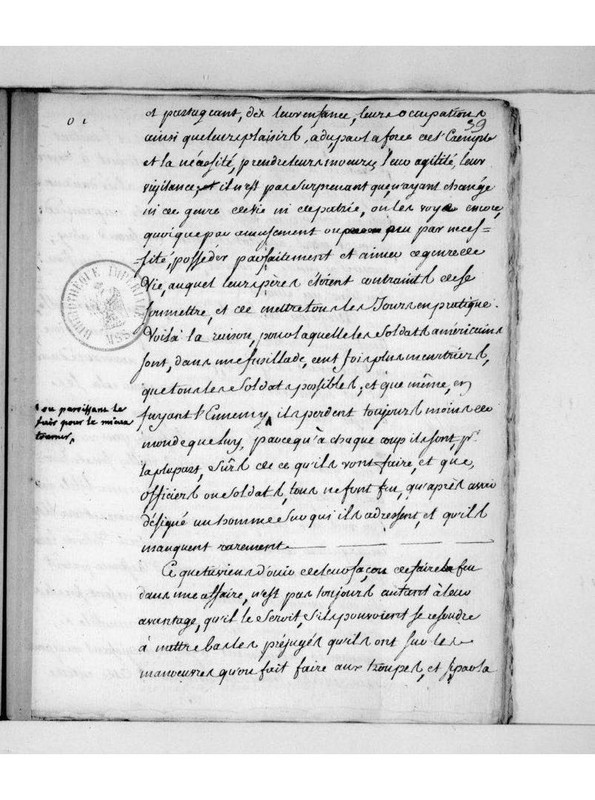 39
et partageant, dès leur enfance, leurs occupations
ainsi que leurs plaisirs, a du, par la force de l'Exemple
et la nécessité, prendre leurs moeurs, leur agilité, leur
vigilance, et il n'est pas surprenant que, n'ayant changé
ni de genre de vie ni de patrie, on les voye encore,
quoique par amusement ou peu par neces-
sité, posséder parfaitement et aimer ce genre de
Vie, auquel leurs pères étoient contraints de se
soumettre, et de mettre tous les Jours en pratique.
Voilà la raison, pour laquelle les Soldats américains
sont, dans une fusillade, cent fois plus meurtriers,
que tous les Soldats possibles; et que même, en
fuyant l'Ennemy, ils perdent toujours moins de
ou paroissant le
fuir pour le mieux
tourner,
monde que luy, parce qu'à chaque coup ils sont, pr.
la plupart, sûrs de ce qu'ils vont faire, et que,
officiers ou Soldats, tous ne font feu, qu'après avoir
désigné un homme Sur qui ils adressent, et qu'ils
manquent rarement
Ce que je viens d'ouir de leur façon de faire feu
dans une affaire, n'est pas toujours autant à leur
avantage, qu'il le Seroit, S'ils pouvoient se resoudre
à mettre bas les préjugés qu'ils ont sur les
manoeuvres qu'on fait faire aux troupes, et si par la
BIBLIOTHEQUE IMPERIALE
MSS